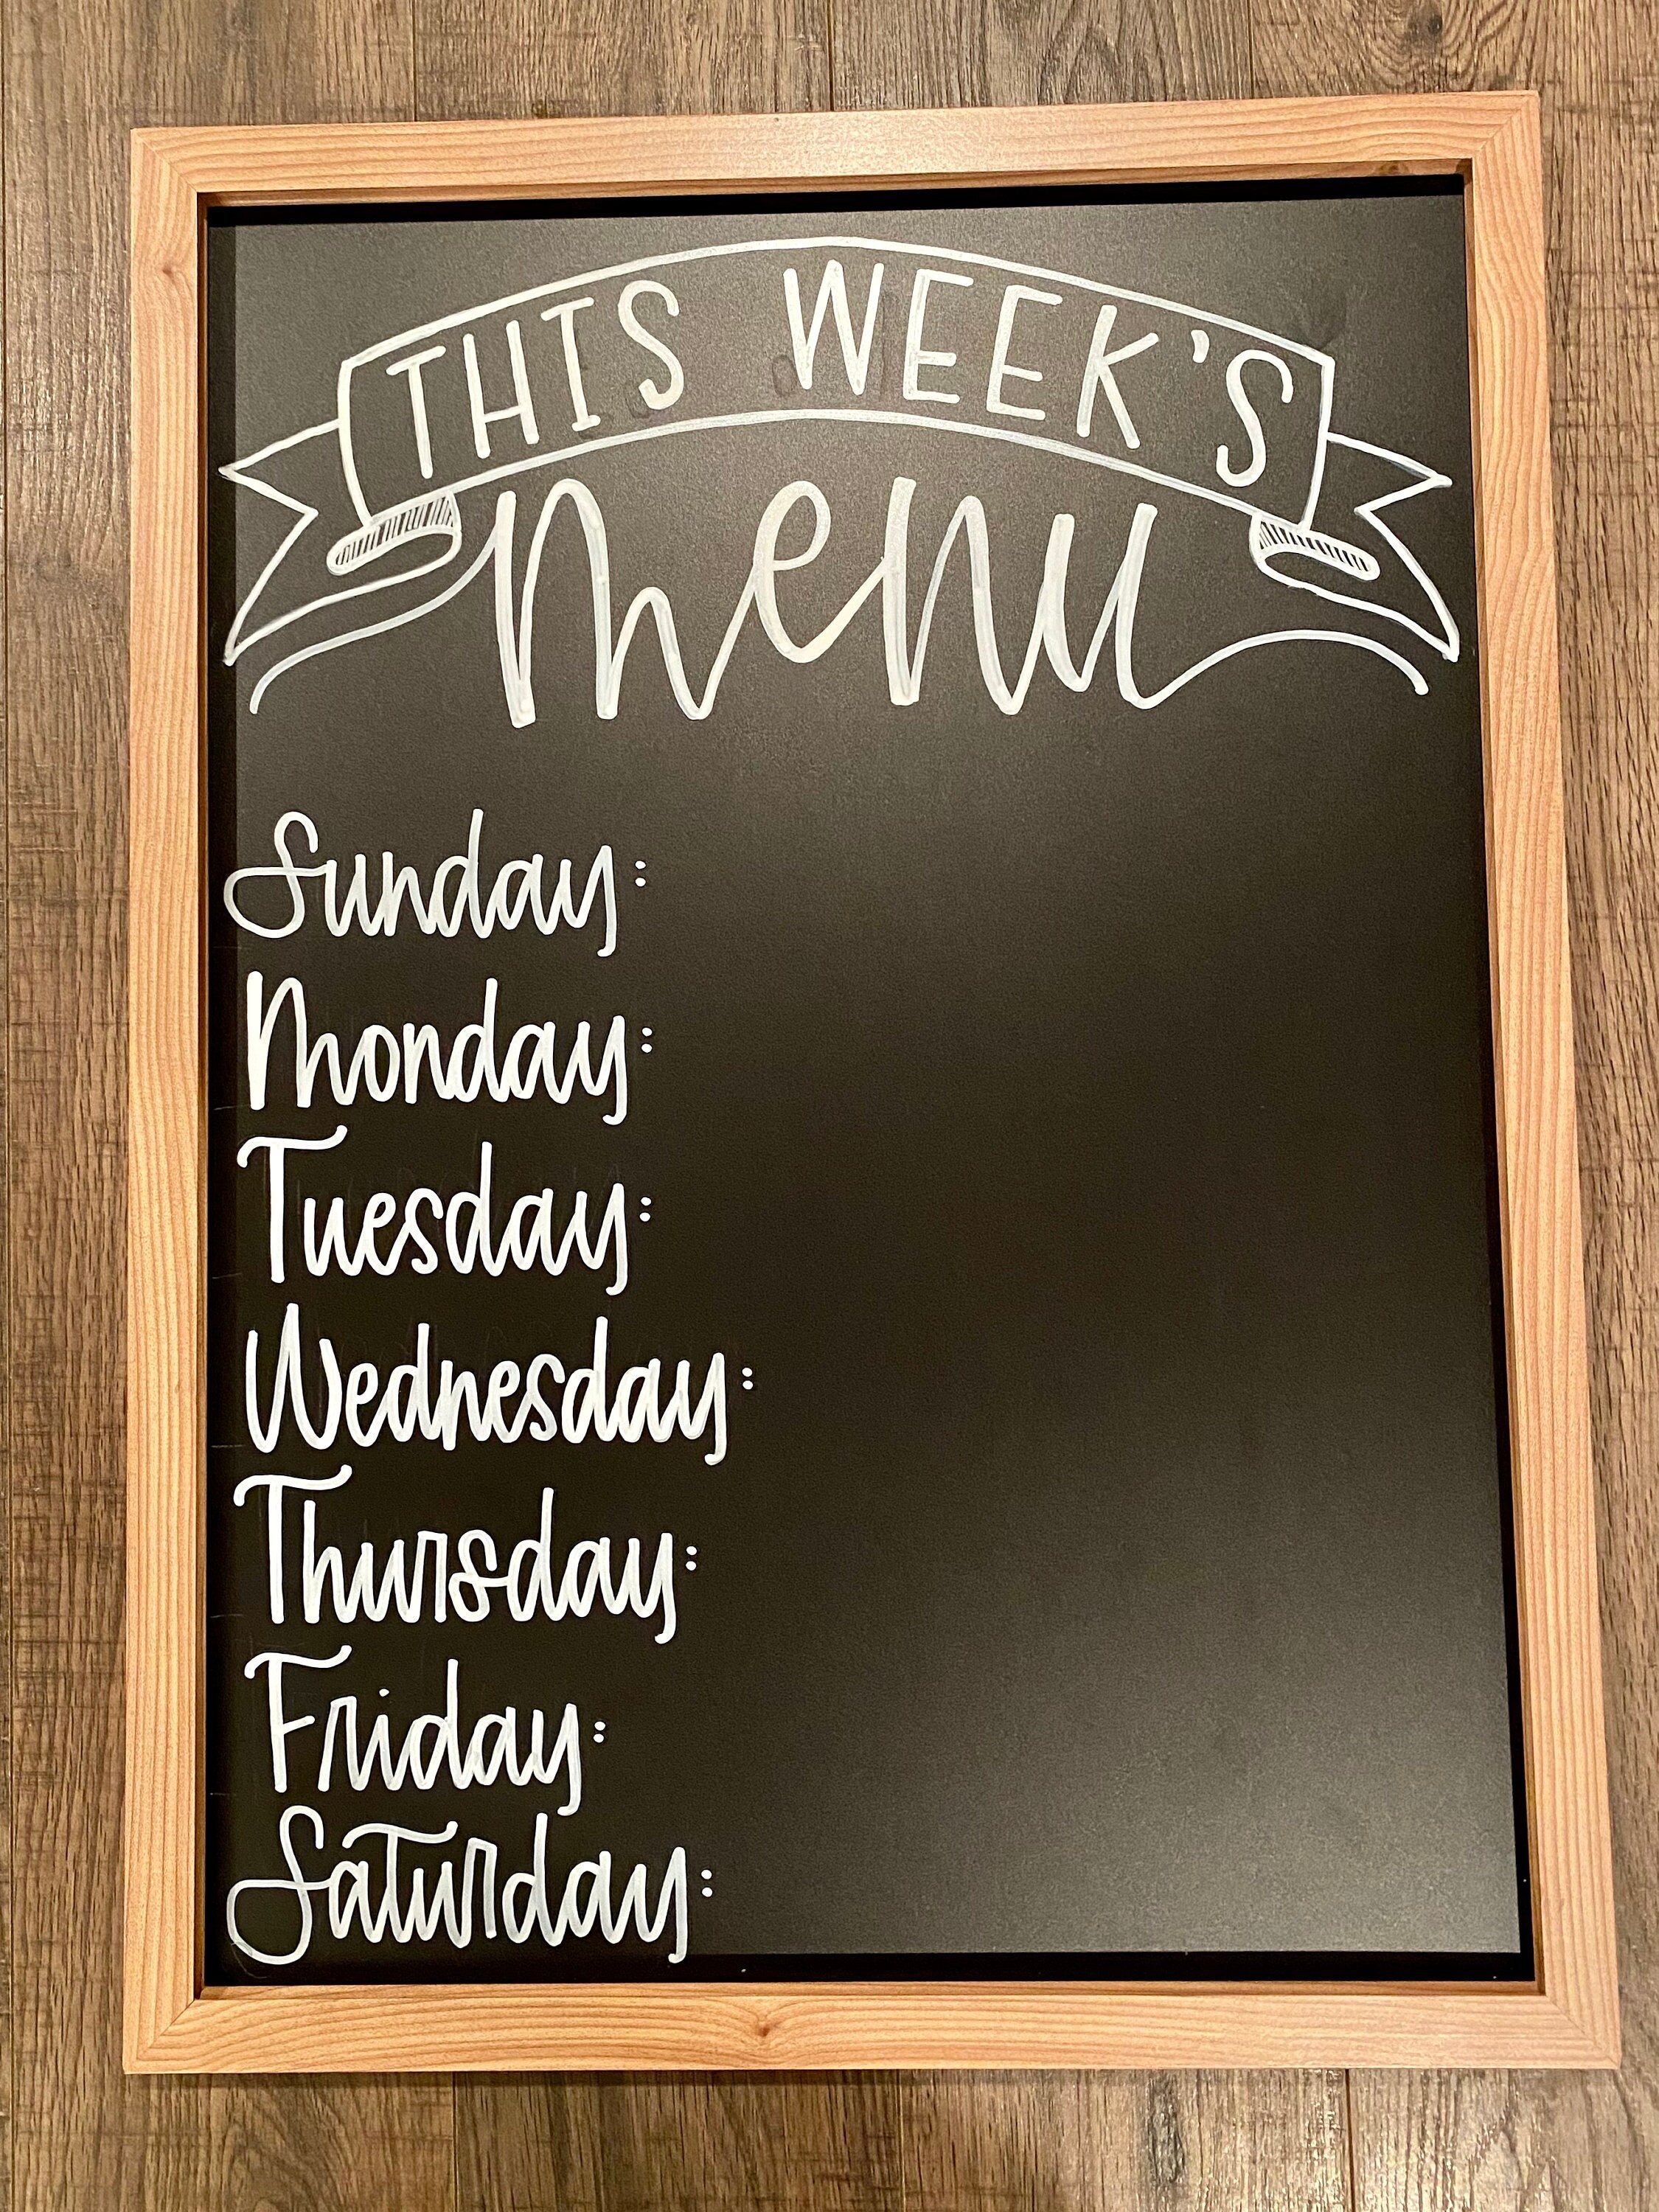 THIS WEEK'S
menu
Sunday:
Monday:
Tuesday:
Wednesday:
Thursday:
Friday:
Saturday: